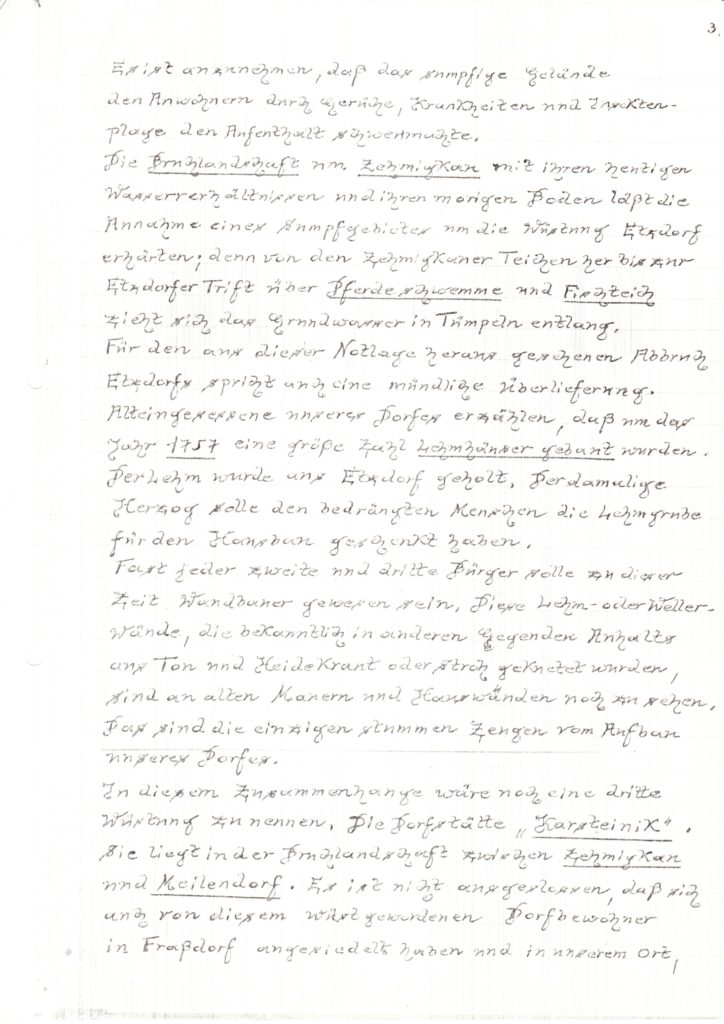 3.
Es ist anzunehmen, daß das sumpfige Gelände
den Anwohnern durch Gerüche, Krankheiten und Insekten-
plage den Aufenthalt schwermachte.
Die Bruchlandschaft um Zehmigkau mit ihren heutigen
Wasserverhältnissen und ihren morigen Boden läßt die
Annahme eines Sumpfgebietes um die Wüstung Etzdorf
erhärten; denn von den Zehmigkauer Teichen her bis zur
Etzdorfer Trift über Pferdeschwemme und Fischteich
zieht sich das Grundwasser in Tümpeln entlang.
Für den aus dieser Notlage heraus geschenen Abbruch
Etzdorfs spricht auch eine mündliche Überlieferung.
Alteingesessene unseres Dorfes erzählen, daß um das
Jahr 1757 eine größe Zahl Lehmhäuser gebaut wurden.
Der Lehm wurde aus Etzdorf geholt. Der damalige
Herzog solle den bedrängten Menschen die Lehmgrube
für den Hausbau geschenkt haben.
Fast jeder zweite und dritte Bürger solle zu dieser
Zeit Wandbauer gewesen sein. Diese Lehm- oder Weller-
wände, die bekanntlich in anderen Gegenden Anhalts
aus Ton und Heidekraut oder Stroh geknetet wurden,
sind an alten Mauern und Hauswänden noch zu sehen.
Das sind die einzigen stummen Zeugen vom Aufbau
unseres Dorfes.
In diesem Zusammenhange wäre noch eine dritte
Wüstung zu nennen. Die Dorfstätte „Karsteinik".
Sie liegt in der Bruchlandschaft zwischen Zehmigkau
und Meilendorf. Es ist nicht ausgeslossen, daß sich
auch von diesem wüst gewordenen Dorfbewohner
in Fraßdorf angesiedelt haben und in unserem Ort,